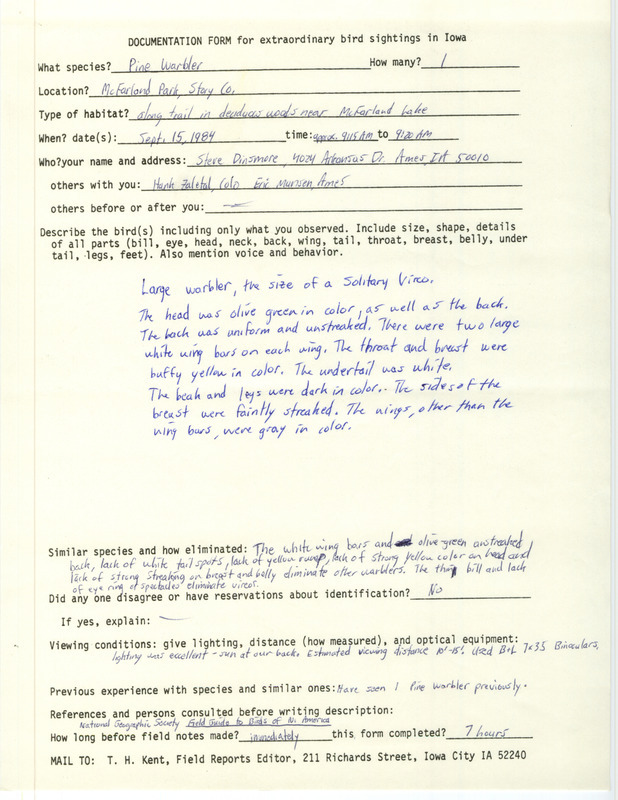 DOCUMENTATION FORM for extraordinary bird sightings in Iowa
What species? Pine Warbler How many? 1
Location? McFarland Park, Story Co.
Type of habitat? along trail in deciduous woods near McFarland Lake
When? date(s): Sept. 15, 1984 time: approx. 9:15 AM to 9:20 AM
Who?your name and address: Steve Dinsmore, 4024 Arkansas Dr. Ames, IA 50010
others with you: Hank Zaletel, Colo Eric Munson, Ames
others before or after you: —
Describe the bird(s) including only what you observed. Include size, shape, details
of all parts (bill, eye, head, neck, back, wing, tail, throat, breast, belly, under
tail, legs, feet). Also mention voice and behavior.
Large warbler, the size of a Solitary Vireo.
The head was olive green in color, as well as the back.
The back was uniform and unstreaked. There were two large
white wing bars on each wing. The throat and breast were
buffy yellow in color. The undertail was white.
The beak and legs were dark in color. The sides of the
breast were faintly streaked. The wings, other than the
wing bars, were gray in color.
Similar species and how eliminated: The white wing bars and olive-green unstreaked
back, lack of white tail spots, lack of yellow rump, lack of strong yellow color on head and
lack of strong streaking on breast and belly eliminate other warblers. The thin bill and lack
of eye ring or spectacles eliminate vireos.
Did any one disagree or have reservations about identification? No
If yes, explain: —
Viewing conditions: give lighting, distance (how measured), and optical equipment:
lighting was excellent - sun at our backs. Estimated viewing distance 10'-15'. Used B+L 7x35 Binoculars.
Previous experience with species and similar ones: Have seen 1 Pine Warbler previously.
References and persons consulted before writing description:
National Geographic Society Field Guide to Birds of N. America
How long before field notes made? immediately this form completed? 7 hours
MAIL TO: T. H. Kent, Field Reports Editor, 211 Richards Street, Iowa City IA 52240